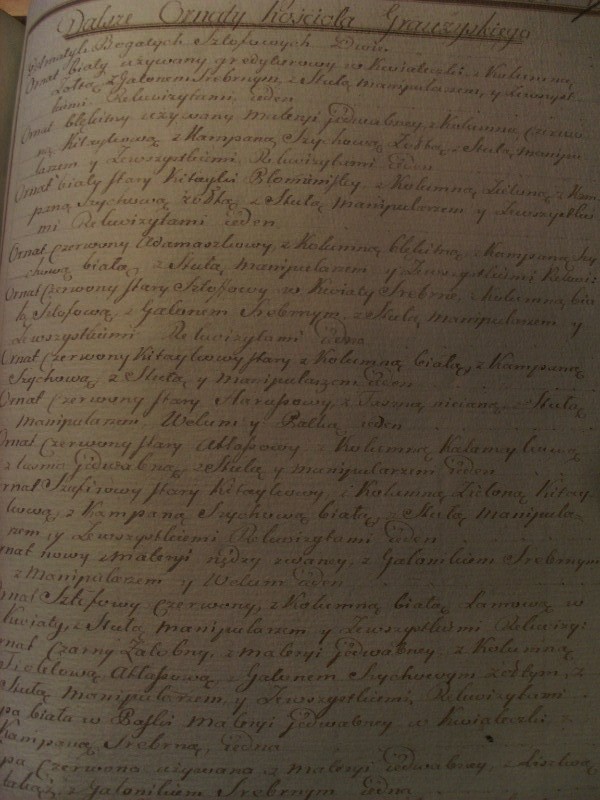 Dalsze Ornaty kościoła Grauzyskiego
Dalmatyk Bogatych Sztofowych Dwie.
Ornat biały używany grodytorowy w kwiateczki, z kolumną
żołtą z Galonem Srebrnym z Stułą manipularzem, y zewszyst:
kiemi Rekwizytami, ieden
Ornat błękitny używany materyi Jedwabney, z kolumną czerwo:
ną kitaykową z Kampaną Szychową żołtą, z Stułą manipu:
larzem y zewszystkiemi, Rekwizytami ieden
Ornat biały stary kitayki z kolumną zieloną z Kam:
paną Szychową żołtą z Stułą manipularzem y zewszystkie:
mi Rekwizytami ieden
Ornat czerwony Adamaszkowy, z kolumną błękitną z Kampaną Szy:
chową białą, z Stułą manipularzem y zewszystkiemi Rekwi:
Ornat czerwony stary Sztofowy w kwiaty Srebrne, z kolumną bia:
łą Sztofową, z Galonem Srebrnym, z Stułą manipularzem y
zewszystkiemi Rekwizytami
Ornat czerwony kitaykowy stary z kolumną białą, z Kampaną
Szychową, z Stułą y manipularzem ieden
Ornat czerwony stary z nicianą, z Stułą
manipularzem Welum y Palką ieden
Ornat czerwony stary Atłasowy z kolumną
z tasmą Jedwabną, z Stułą y manipularzem ieden
Ornat Szafirowy stary kitaykowy, z kolumną zieloną kitay:
kową, z Kampaną Szychową białą, z Stułą manipula:
rzem y zewszystkiemi Rekwizytami ieden
Ornat nowy z materyi zwaney, z Galonkiem Srebrnym
z manipularzem y Welum ieden
Ornat Sztofowy czerwony, z kolumną białą Lamową w
kwiaty, z Stułą manipularzem y zewszystkiemi Rekwizy:
Ornat czarny żałobny, z materyi Jedwabney, z kolumną
Fioletową Atłasową z Galonem Szychowym żołtym, z
Stułą manipularzem, y zewszystkiemi, Rekwizytami
pa biała w Paski materyi Jedwabney w kwiateczki z
Kampaną Srebrną, iedna
pa czerwona używana z materyi Jedwabney, z
białą, z Galonikiem Srebrnym iedna